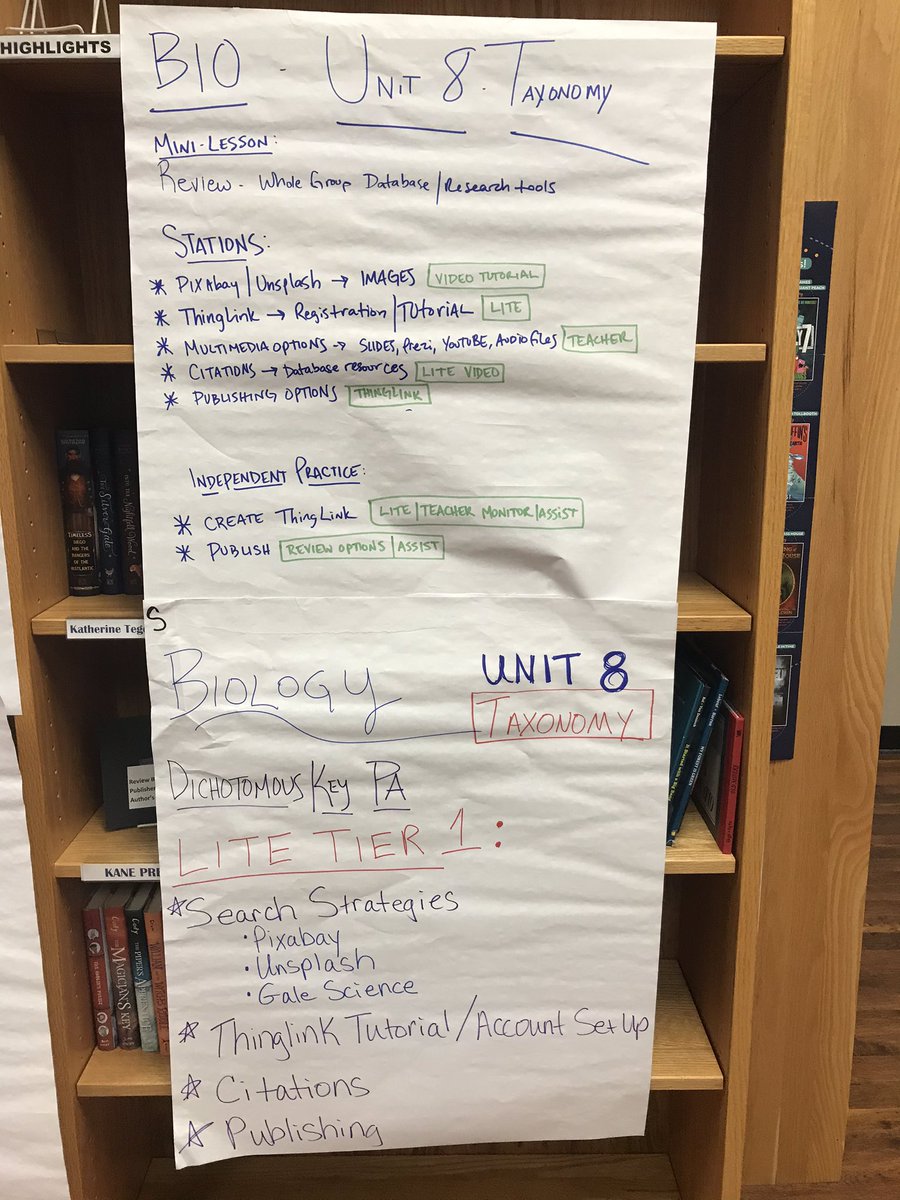 HIGHLIGHTS
BIO - UNIT 8 - TAXONOMY
MINI-LESSON:
REVIEW - WHOLE GROUP DATABASE/RESEARCH tools
STATIONS:
* PIXABAY/UNSPLASH → IMAGES VIDEO TUTORIAL
* THINGLINK → REGISTRATION/TUTORIAL LITE
* MULTIMEDIA OPTIONS → SLIDES, PREZI, YOUTUBE, AUDIO FILES TEACHER
* CITATIONS → DATABASE RESOURCES LITE VIDEO
* PUBLISHING OPTIONS THINGLINK
INDEPENDENT PRACTICE:
* CREATE THINGLINK LITE/TEACHER MONITOR/ASSIST
* PUBLISH REVIEW OPTIONS/ASSIST
S
Katherine Teg
BIOLOGY UNIT 8
TAXONOMY
DICHOTOMOUS KEY PA
LITE TIER 1:
☆ Search Strategies
• Pixabay
• Unsplash
• Gale Science
☆ Thinglink Tutorial/Account Set Up
☆ Citations
☆ Publishing
Review
Publisher
Author's
KANE PRE
TIMELESS
DIEGO AND THE
RANGERS OF THE
VASTLANTIC
THE MAGICIAN'S KEY